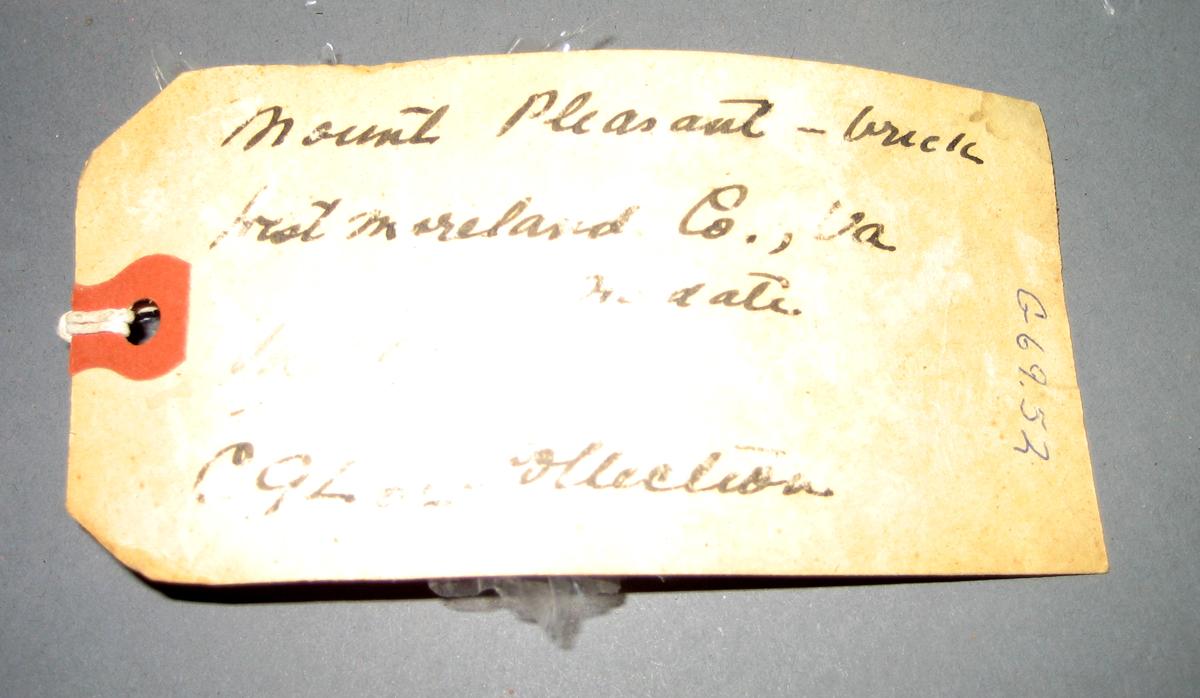 Mount Pleasant - brick
Westmoreland Co., Va
No date.
C G L Collection
G69.52